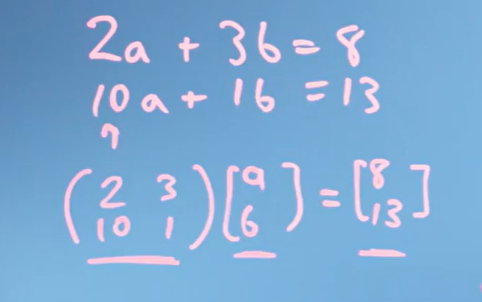 2a + 3b = 8
10a + 1b = 13
(2 3
10 1) [a
b] = [8
13]